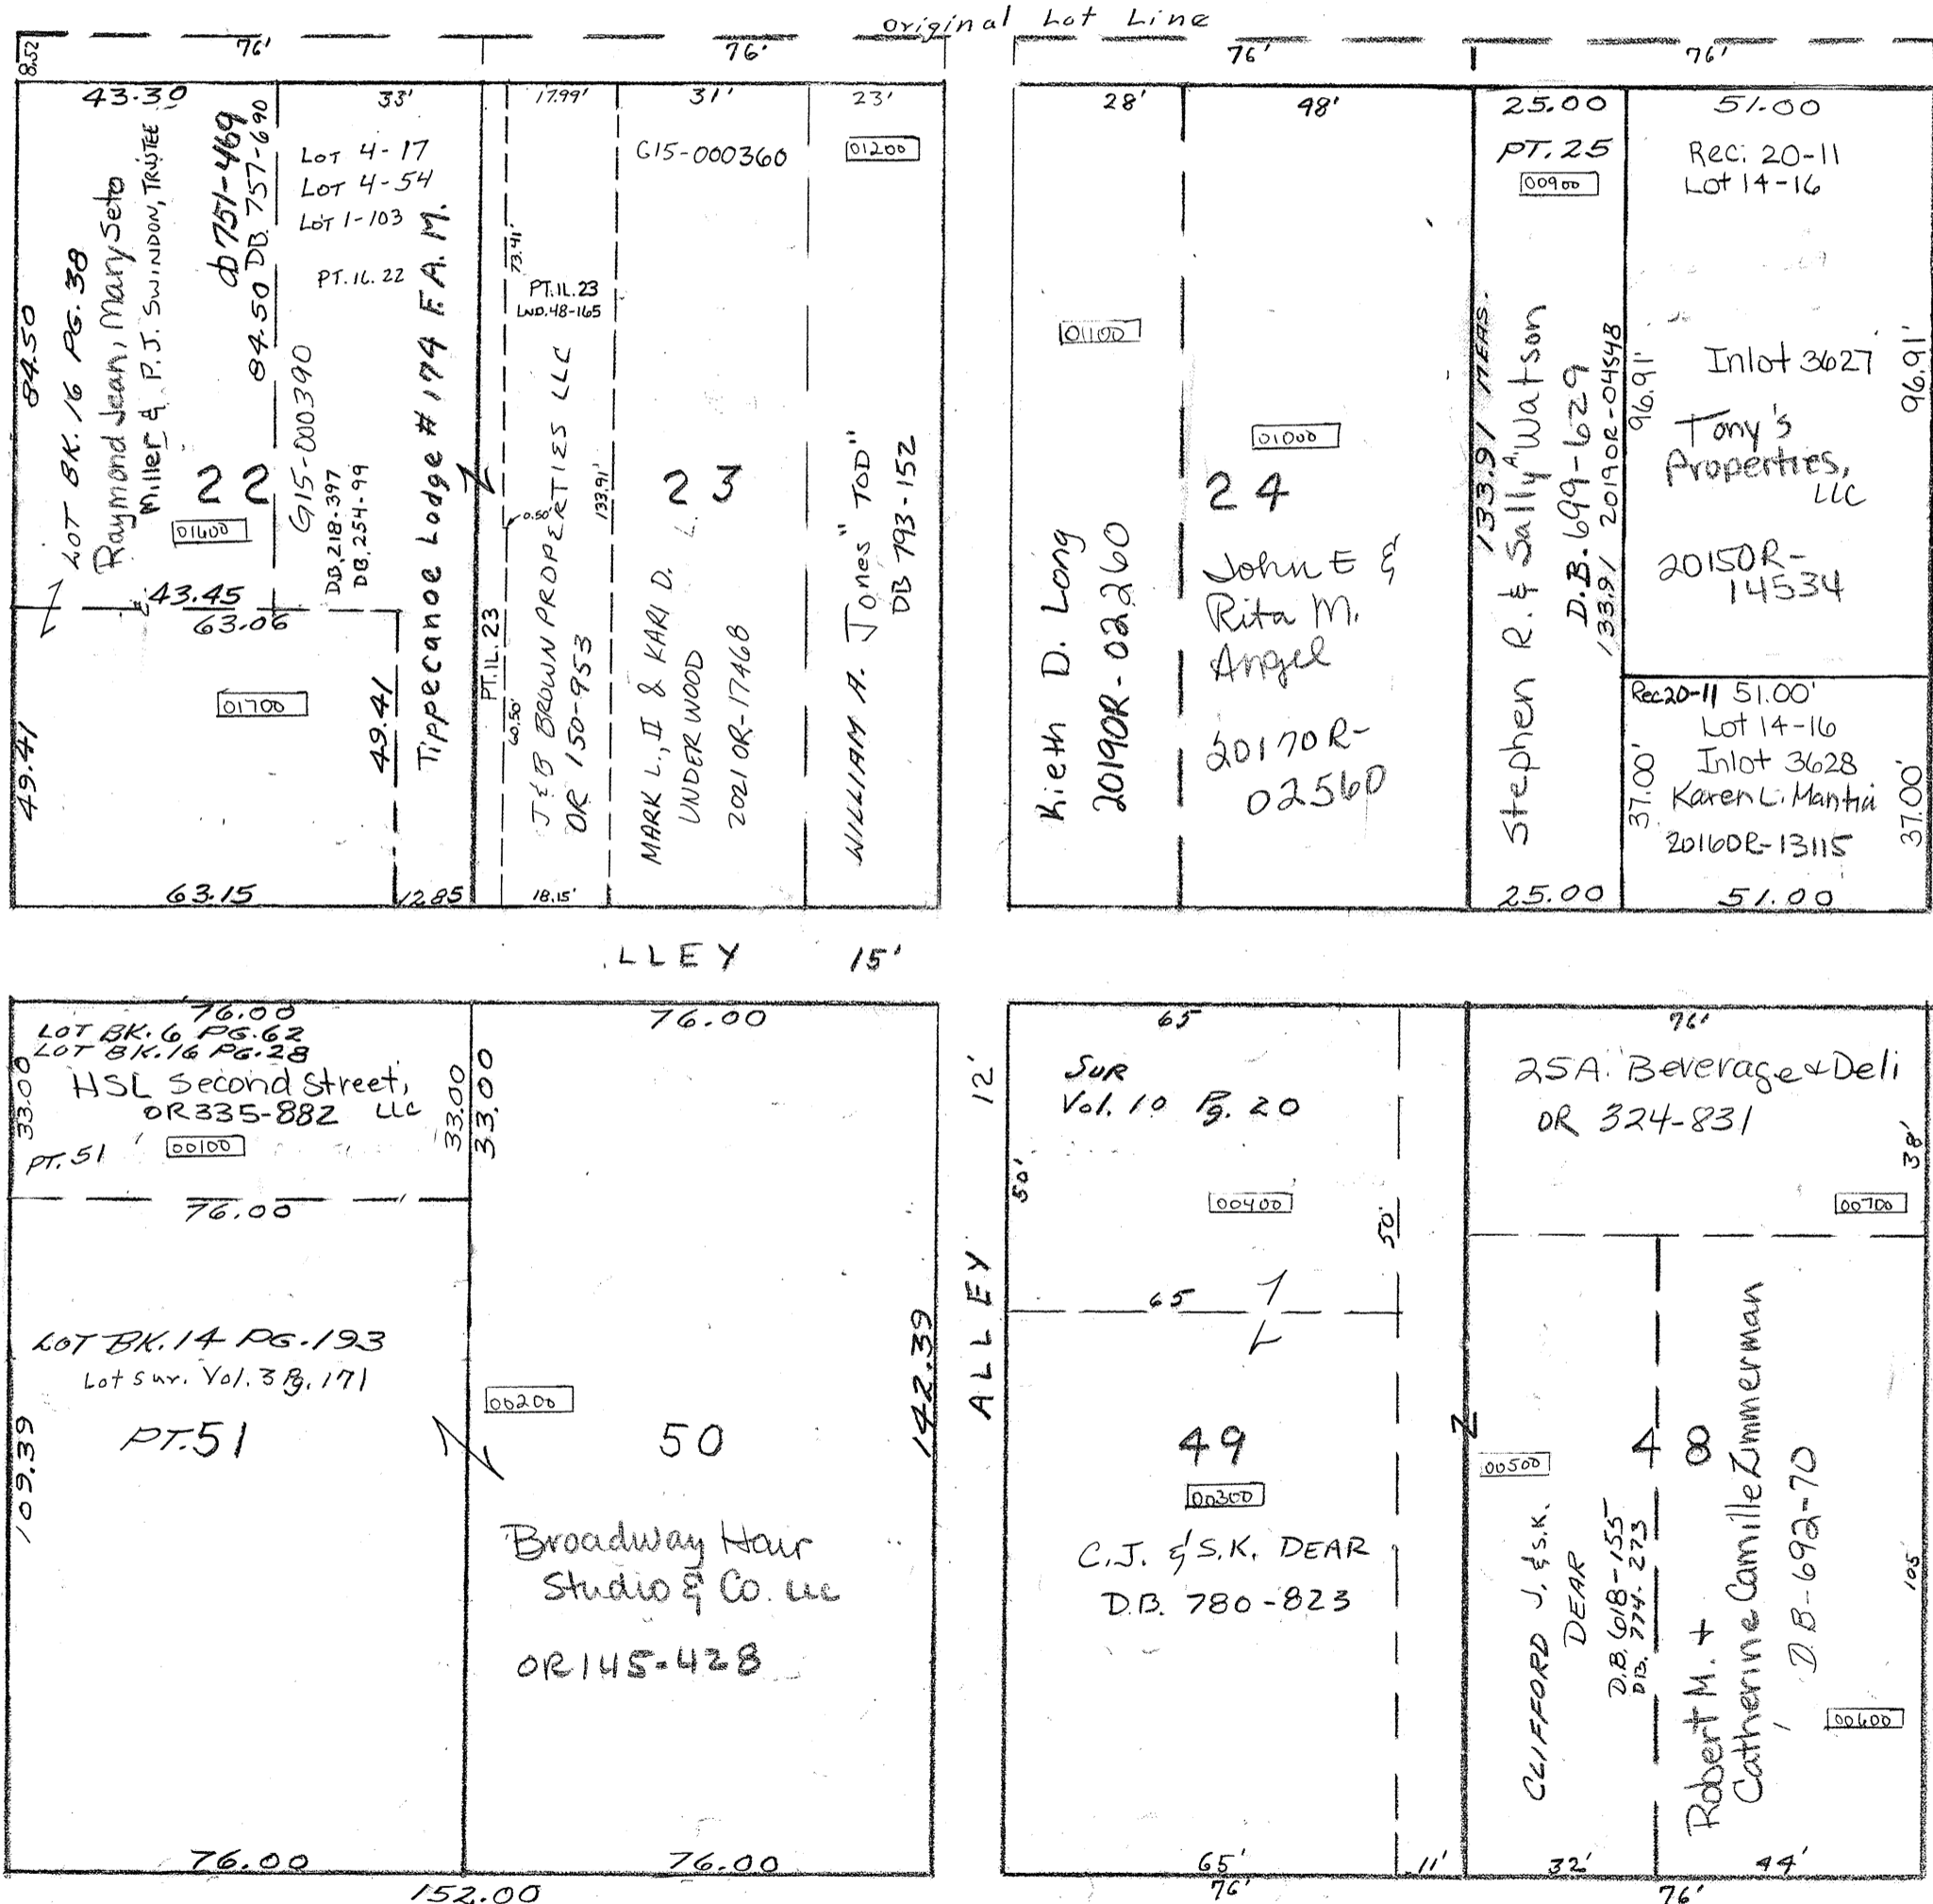 original Lot Line
8.52
76'
76'
76'
76'
43.30
33'
17.99'
31'
23'
84.50
LOT BK. 16 PG. 38
Raymond Jean, Mary Seto
Miller & P.J. SWINDON, TRUSTEE
db 751-469
84.50 DB. 757-690
22
01600
43.45
LOT 4-17
LOT 4-54
LOT 1-103
PT. IL. 22
G15-000390
DB. 218-397
DB. 254-99
Tippecanoe Lodge # 174 F. A. M.
63.06
49.41
01700
49.41
63.15
12.85
73.41'
PT. IL. 23
LND. 48-165
0.50'
PT. IL. 23
60.50'
J & B BROWN PROPERTIES LLC
OR 150-953
133.91'
18.15'
G15-000360
23
MARK L., II & KARI D. L.
UNDERWOOD
2021OR-17468
01200
WILLIAM A. Jones "TOD"
DB 793-152
28'
48'
01100
Kieth D. Long
2019OR-02260
01000
24
John E &
Rita M.
Angel
2017OR-
02560
25.00
PT. 25
00900
133.91 MEAS.
Stephen R. & Sally A. Watson
D.B. 699-629
133.91 2019OR-04548
25.00
51.00
Rec. 20-11
Lot 14-16
96.91'
96.91'
Inlot 3627
Tony's
Properties,
LLC
2015OR-
14534
Rec 20-11 51.00'
Lot 14-16
Inlot 3628
Karen L. Mantia
2016OR-13115
37.00'
37.00'
51.00
.LLEY 15'
76.00
LOT BK. 6 PG. 62
LOT BK. 16 PG. 28
HSL Second Street,
OR 335-882 LLC
33.00
33.00
PT. 51
00100
76.00
LOT BK. 14 PG. 193
Lot Sur. Vol. 3 Pg. 171
PT. 51
109.39
76.00
76.00
33.00
00200
50
142.39
Broadway Hair
Studio & Co. LLC
OR 145-428
76.00
152.00
ALLEY 12'
65
Sur
Vol. 10 Pg. 20
50'
00400
50'
65
49
00300
C.J. & S.K. DEAR
D.B. 780-823
65'
11'
76'
76'
25A. Beverage & Deli
OR 324-831
38'
00700
48
00500
CLIFFORD J. & S.K.
DEAR
D.B. 618-155
D.B. 774-273
Robert M. +
Catherine Camille Zimmerman
D.B-692-70
105
00600
32'
44'
76'